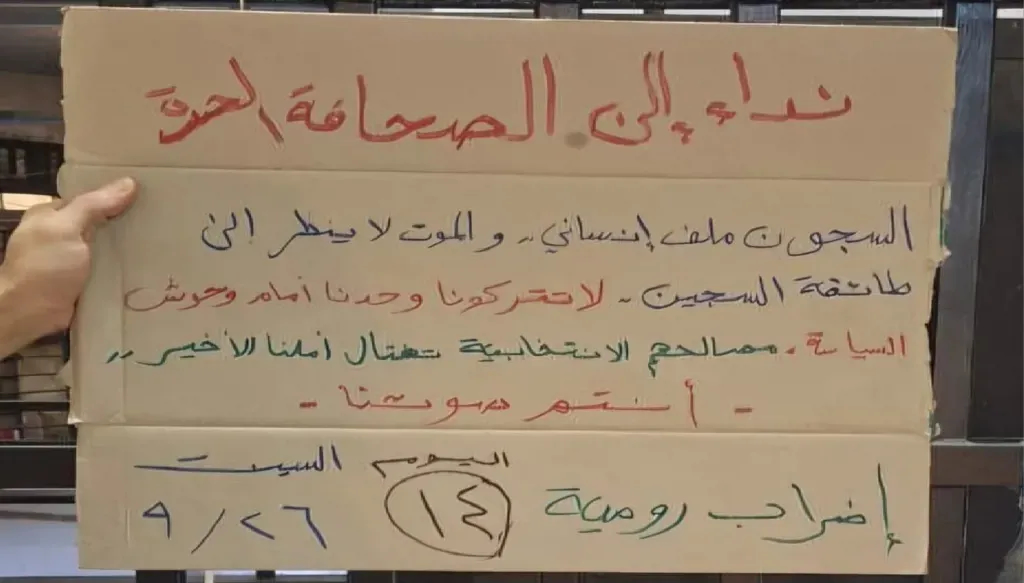 نداء إلى الصحافة الحرة
السجون ملف إنساني.. والموت لا ينظر إلى
طائفة السجين.. لا تتركونا وحدنا أمام وحوش
السياسة. مصالحهم الانتخابية تغتال أملنا الأخير..
- أنتم صوتنا -
إضراب رومية اليوم ١٤ السبت
٢٦/٩